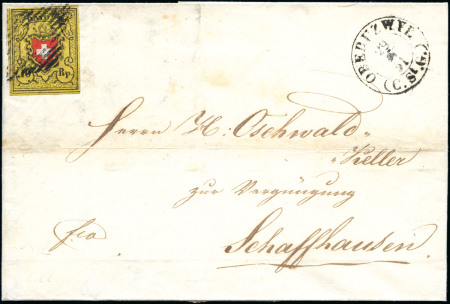 10 Rp.
OBERUZWYL (C. St. G.)
Herrn H: Oschwald-
Keller
zur Vergnügung
fco
Schaffhausen.